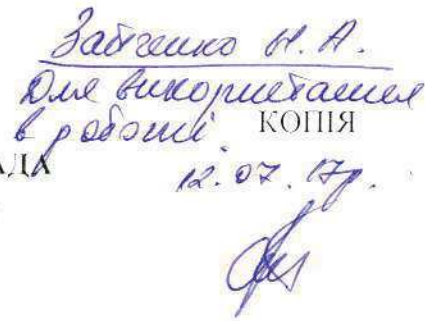 Зайченко Н. А.
Для використання
в роботі. КОПІЯ
АДА
12.07.17р.